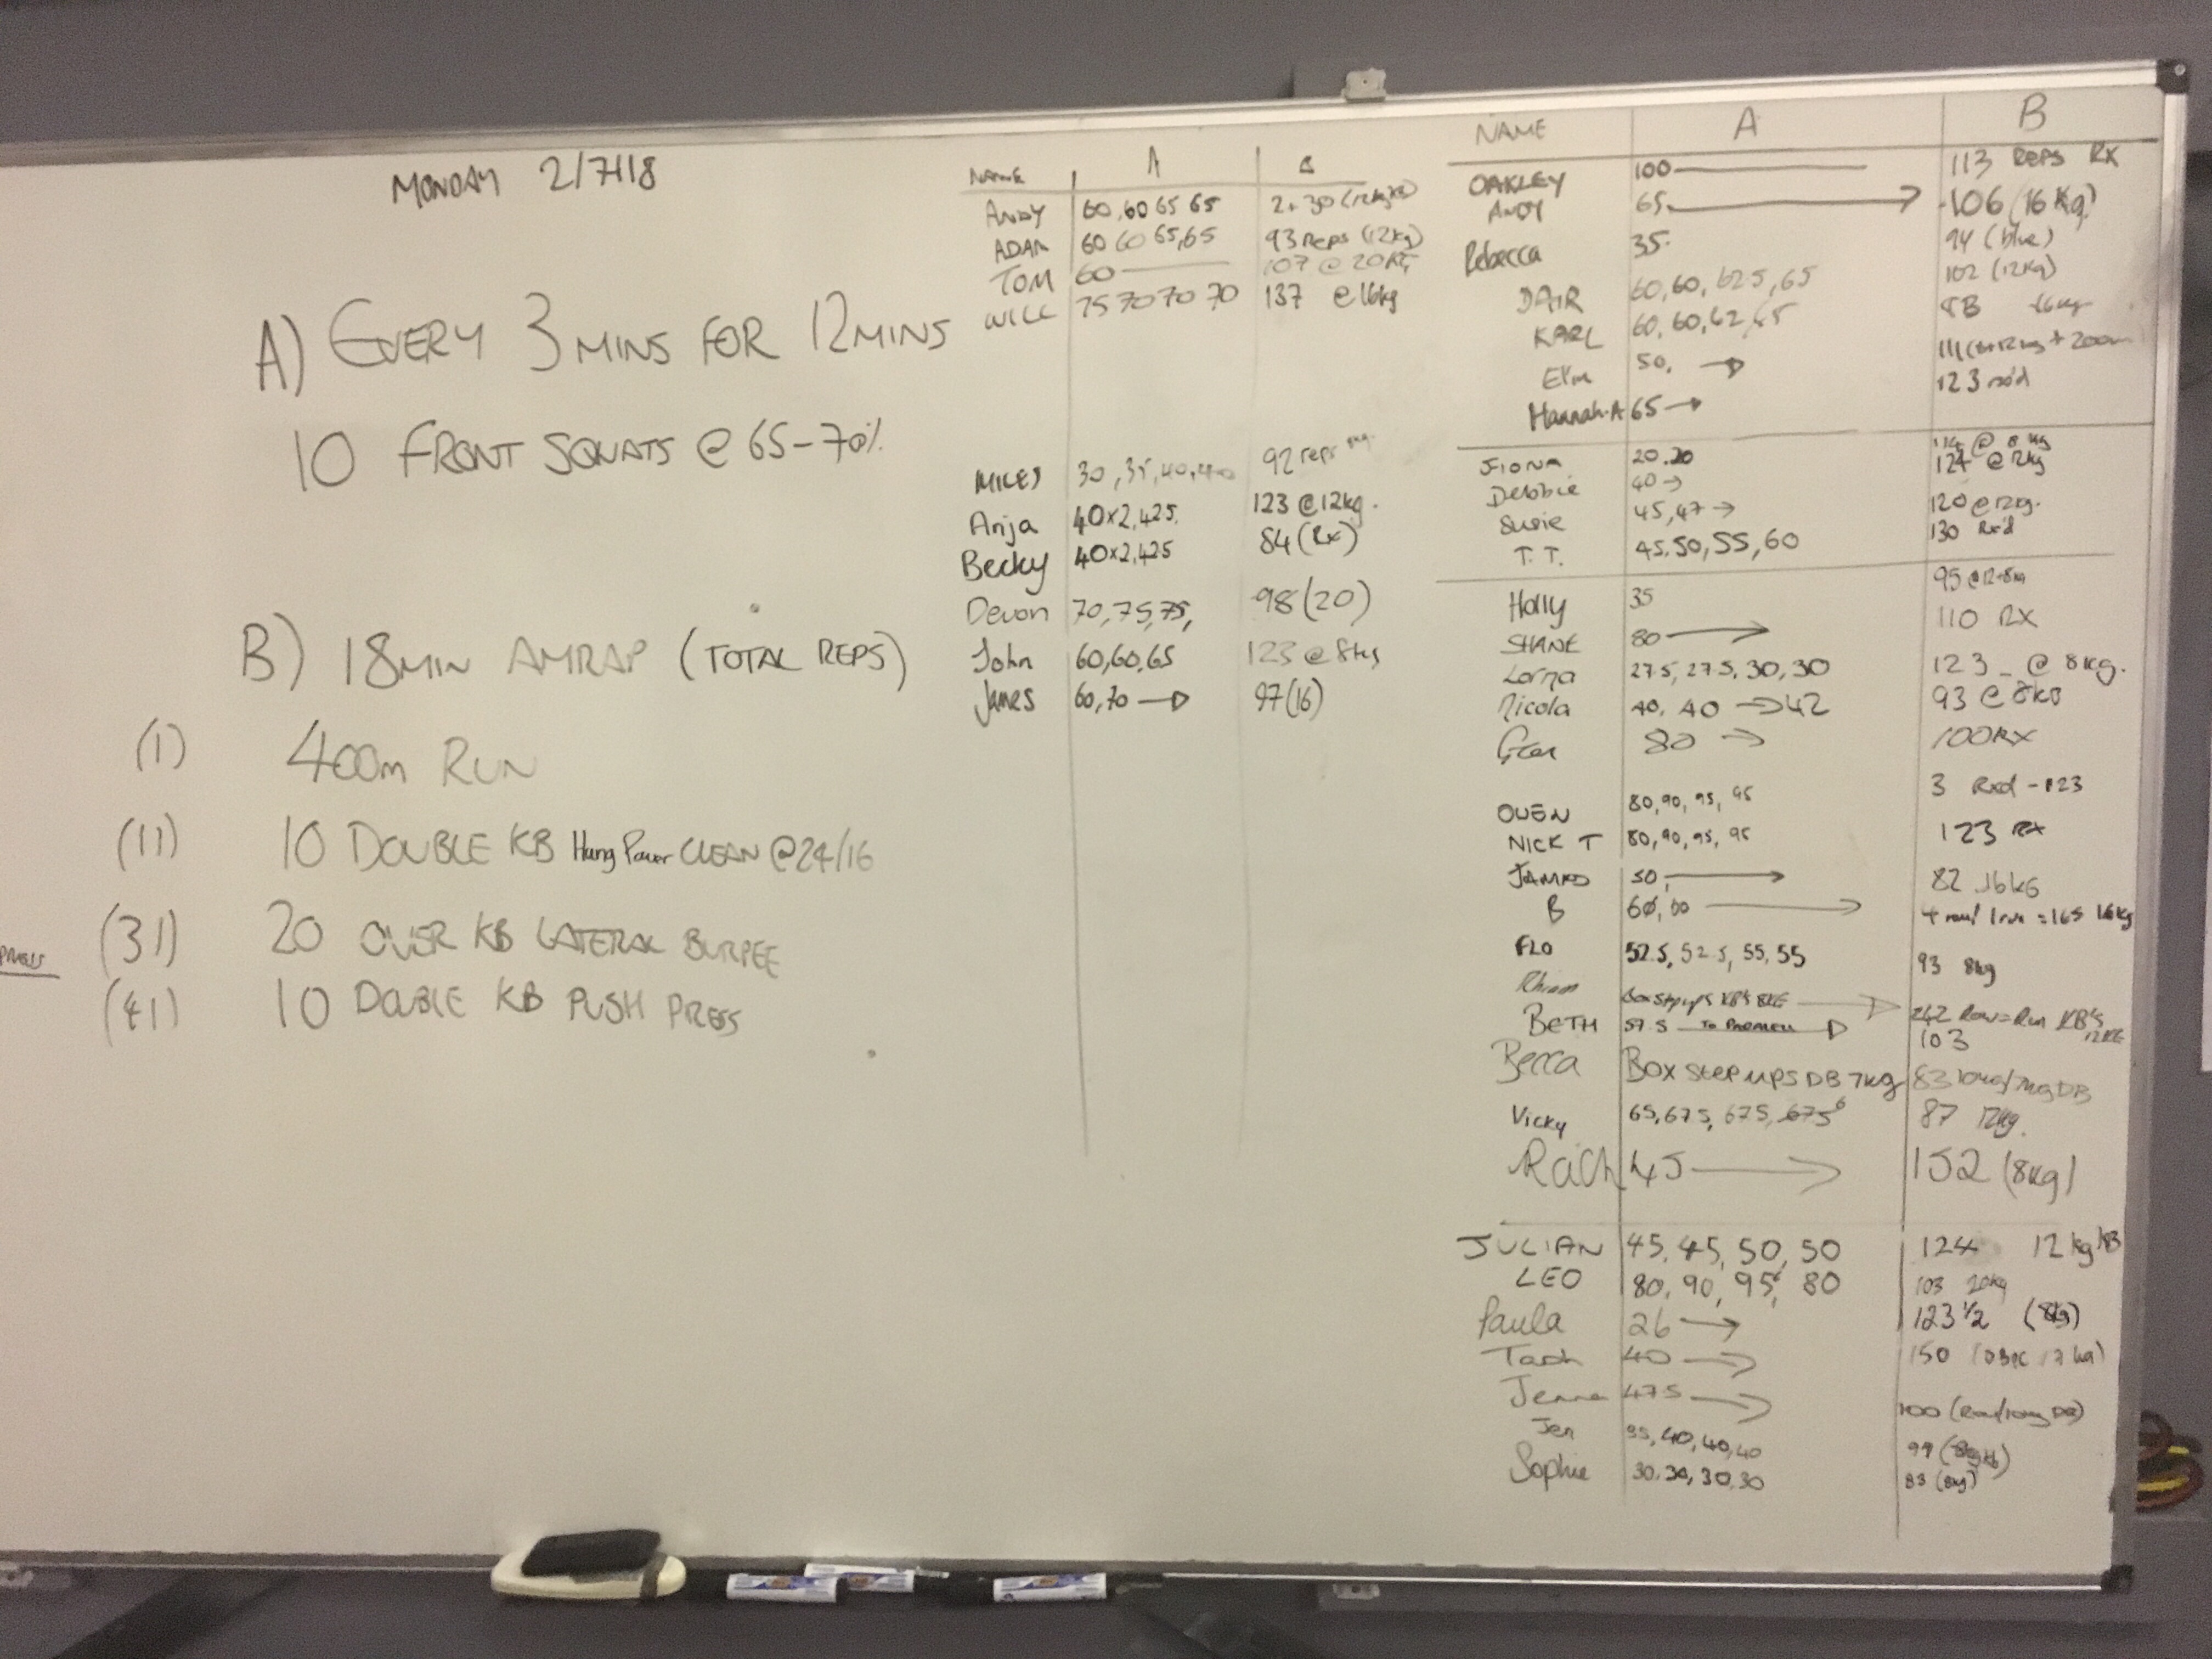 MONDAY 2/7/18
A) EVERY 3 MINS FOR 12 MINS
10 FRONT SQUATS @ 65-70%
B) 18 MIN AMRAP (TOTAL REPS)
(1) 400m RUN
(11) 10 DOUBLE KB Hang Power CLEAN @24/16
(31) 20 OVER KB LATERAL BURPEE
(41) 10 DOUBLE KB PUSH PRESS
NAME A B
ANDY 60,60 65 65 2+30
ADAM 60 60 65,65 93 reps (12kg)
TOM 60 107 @ 20KG
WILL 75 70 70 70 137 @16kg
MILES 30,35,40,40 92 reps
Anja 40x2,425. 123 @12kg.
Becky 40x2,425 84 (Rx)
Devon 70,75,75, 98(20)
John 60,60,65 123 @ 8kg
James 60,70 → 97(16)
NAME A B
OAKLEY 100 113 REPS RX
ANDY 65 → 106 (16Kg)
Rebecca 35 94 (blue)
60,60,625,65 102 (12Kg)
KARL 60,60,62,65
50, →
Hannah.A 65 → 123
FIONA 20.20 @ 8kg
Debbie 40 → 124 @ 12kg
Susie 45,47 → 120 @ 12kg.
T.T. 45,50,55,60 130 Rx'd
Holly 35 95
SHANE 80 → 110 RX
Lorna 27.5, 27.5, 30, 30 123 _ @ 8kg.
Nicola 40, 40 → 42 93 @ 8KB
80 → 100RX
OWEN 80,90, 95, 95 3 Rxd - 123
NICK T 80, 90, 95, 95 123 RX
50, → 82 16KG
B → = 165 16kg
FLO 52.5, 52.5, 55, 55 93 8kg
Box step ups KB's 8KG → 242 Row = Run KB's 12KG
BETH 57.5 TO PARALLEL → 103
Becca BOX STEP UPS DB 7kg 83
Vicky 65,675, 675, 675 87 12kg.
Rach 45 → 152 (8Kg)
JULIAN 45, 45, 50, 50 124 12kg KB
LEO 80, 90, 95, 80 103 20kg
Paula 26 → 123 1/2 (8kg)
Tash 40 → 150
Jenna 475 → 100
Jen 35, 40, 40, 40 99
Sophie 30, 30, 30, 30 83 (8kg)